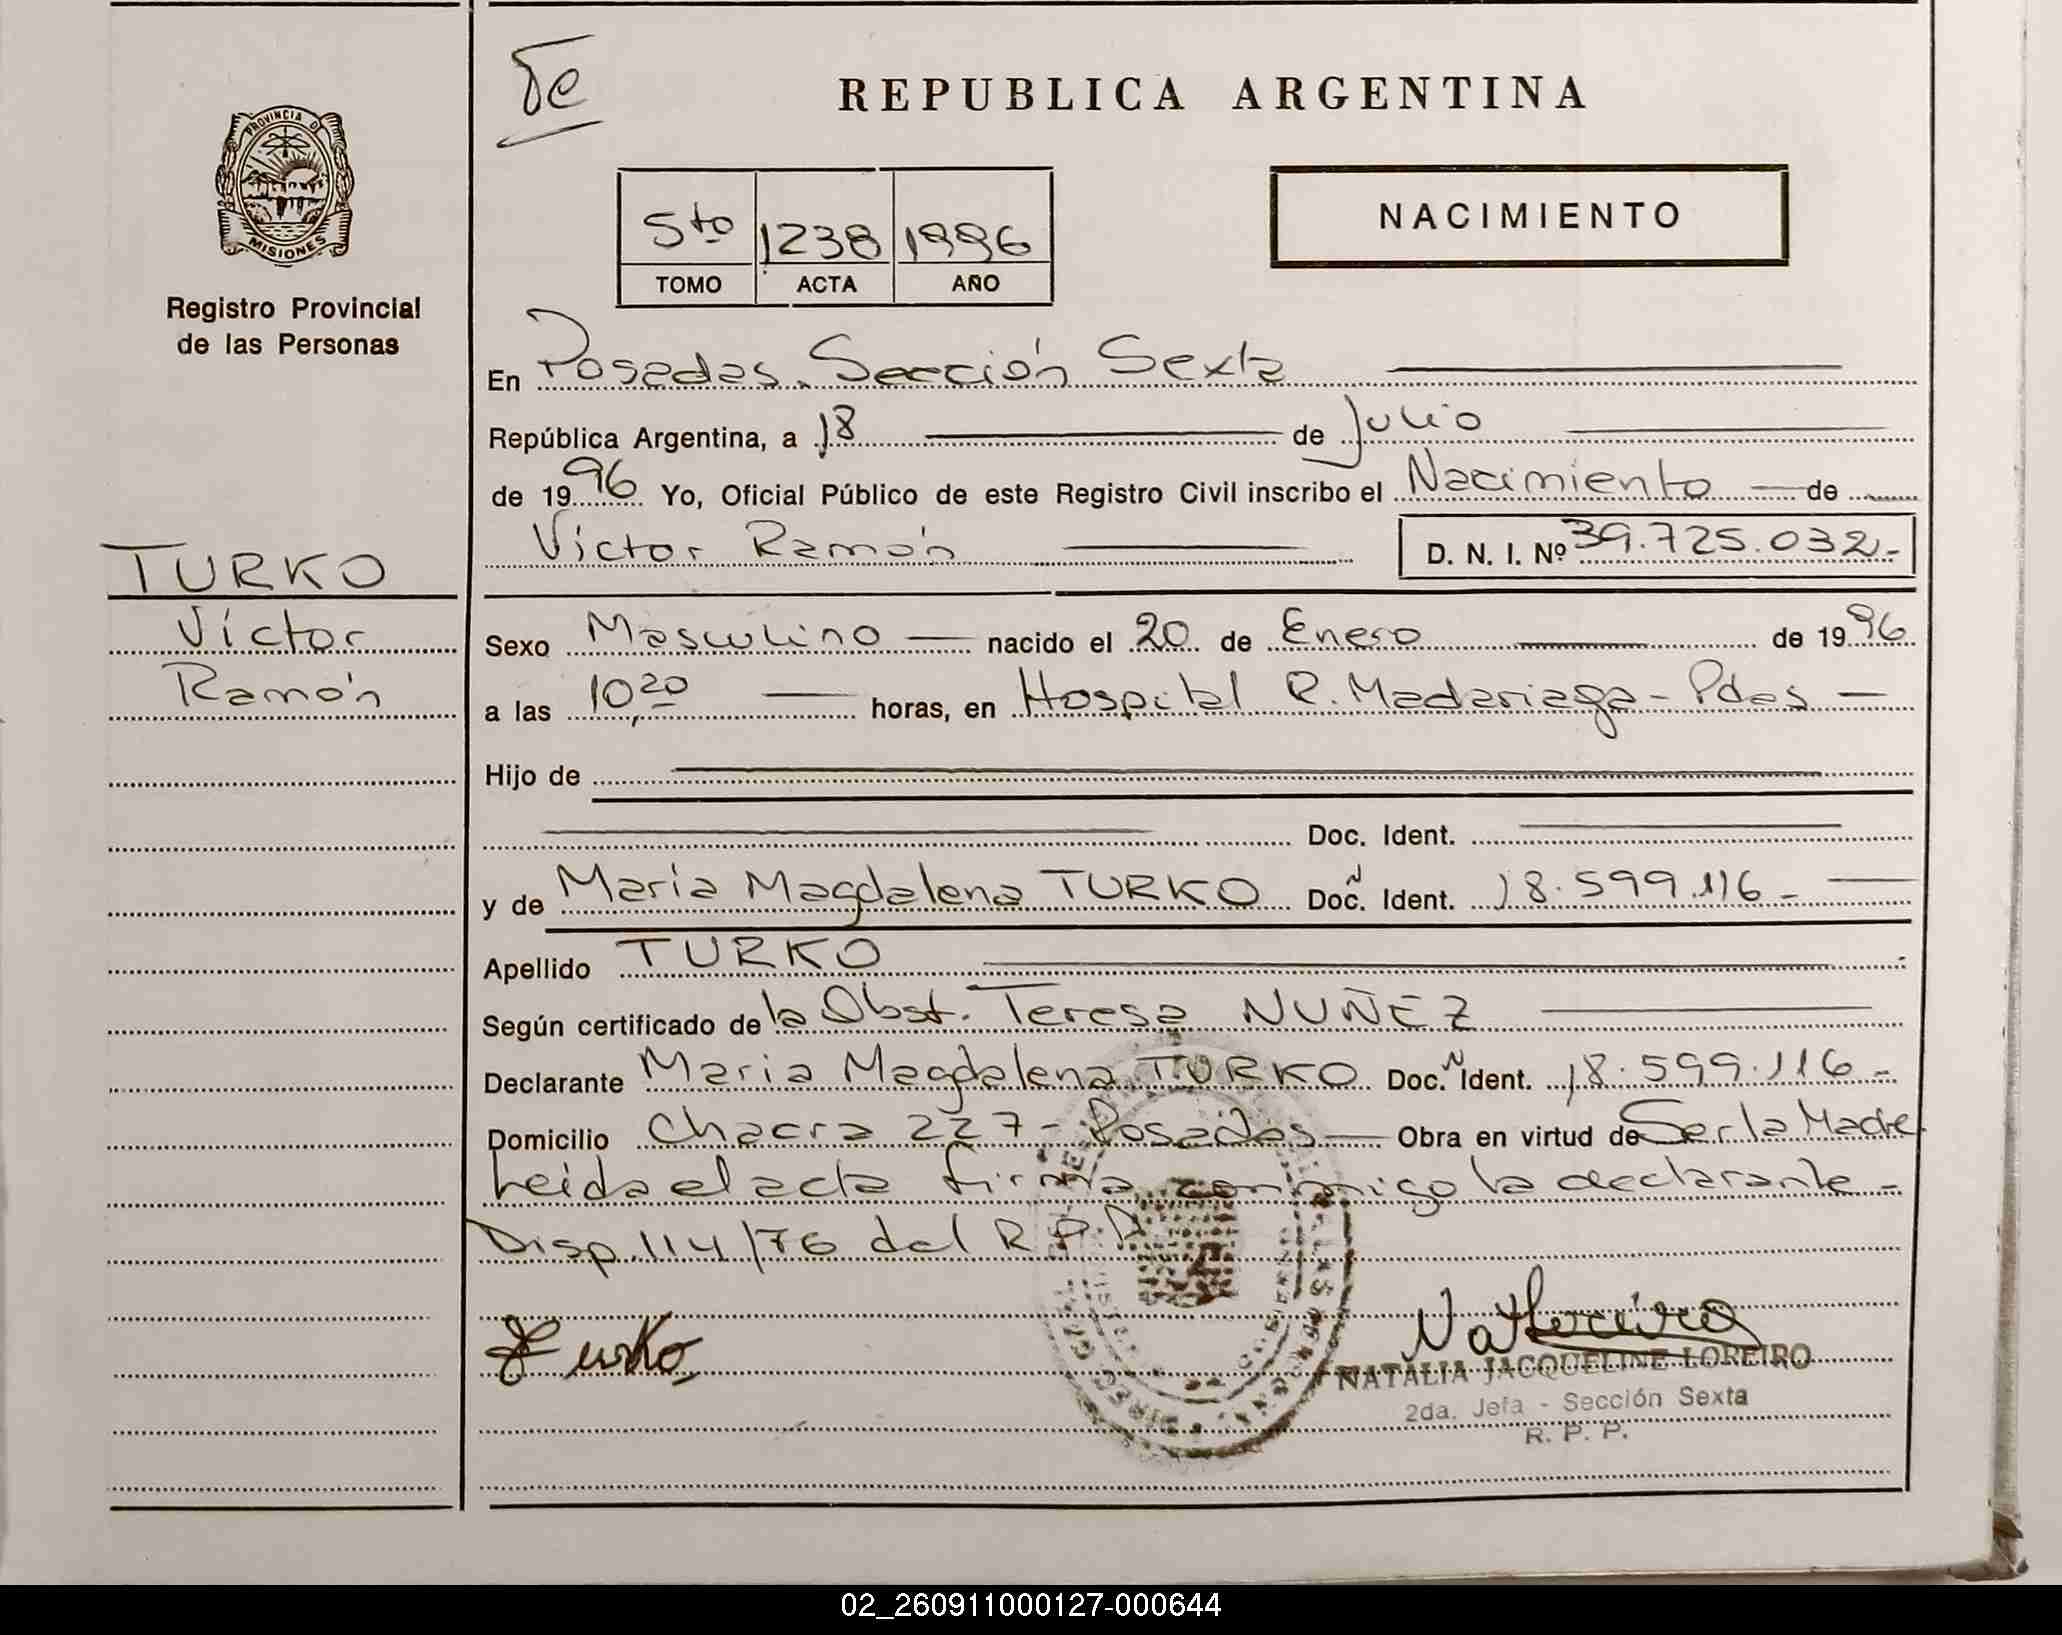 Te
REPUBLICA ARGENTINA
PROVINCIA D
MISIONES
Registro Provincial
de las Personas
NACIMIENTO
5to 1238 1996
TOMO ACTA AÑO
En Posadas. Sección Sexta
República Argentina, a 18 de Julio
de 1996 Yo, Oficial Público de este Registro Civil inscribo el Nacimiento de
Víctor Ramón D. N. I. Nº 39.725.032.-
TURKO
Víctor
Ramón
Sexo Masculino nacido el 20 de Enero de 1996
a las 10,20 horas, en Hospital R. Madariaga - Pdas
Hijo de
Doc. Ident.
y de Maria Magdalena TURKO Doc. Ident. 18.599.116-
Apellido TURKO
Según certificado de la Obst. Teresa NUÑEZ
Declarante Maria Magdalena TURKO Doc. Ident. 18.599.116-
Domicilio Chacra 227 - Posadas Obra en virtud de Ser la Madre
Leida el acta firma conmigo la declarante -
Disp. 114/76 del R.P.P.
Turko
NATALIA JACQUELINE LOREIRO
2da. Jefa - Sección Sexta
R. P. P.
02_260911000127-000644